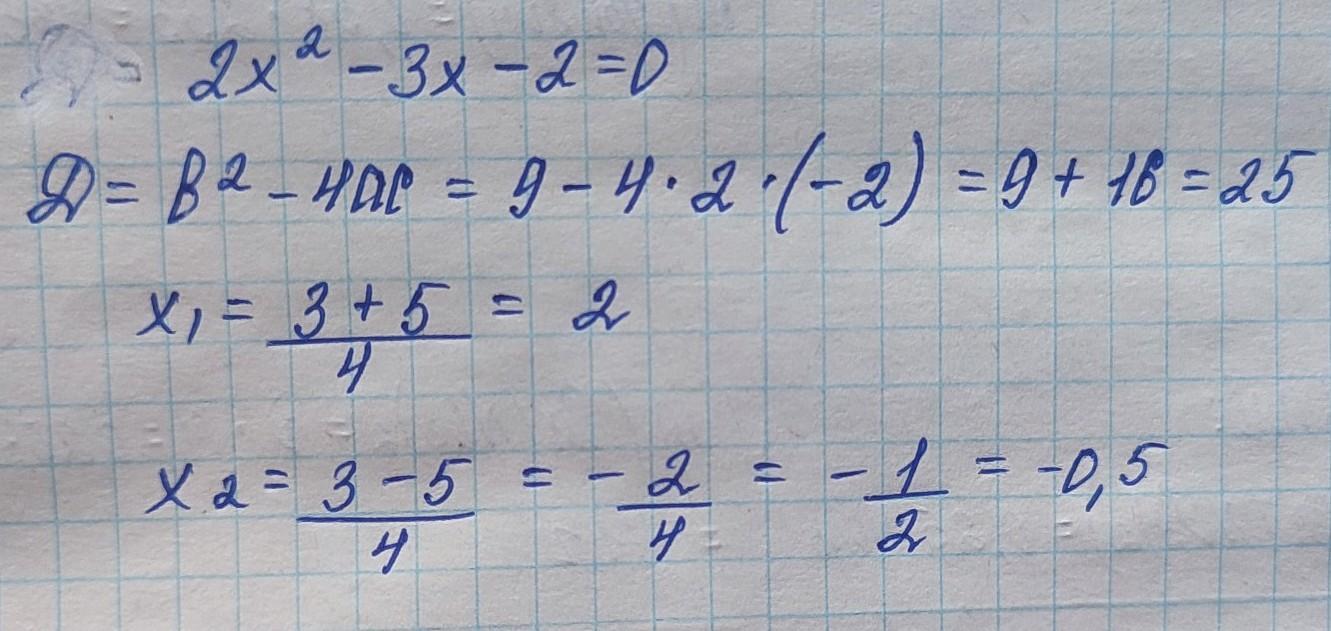 2x² - 3x - 2 = 0
Д = b² - 4ac = 9 - 4 · 2 · (-2) = 9 + 16 = 25
x₁ = (3 + 5)/4 = 2
x₂ = (3 - 5)/4 = -2/4 = -1/2 = -0,5